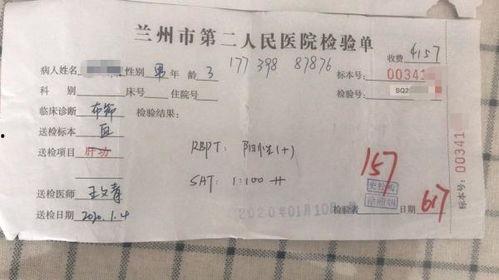 兰州市第二人民医院检验单
收费 4157
病人姓名 性别 男 年龄 3 177398 87876 标本号: 00341
科别 床号 住院号 检验号: SQ2
临床诊断 布病 检验结果:
送检标本 血
送检项目 肝功 RBPT: 阳性(+)
SAT: 1:100 ++
157
送检医师
送检日期 2020.1.4 2020年01月10日 检验者 日期 617
标本号: 00341